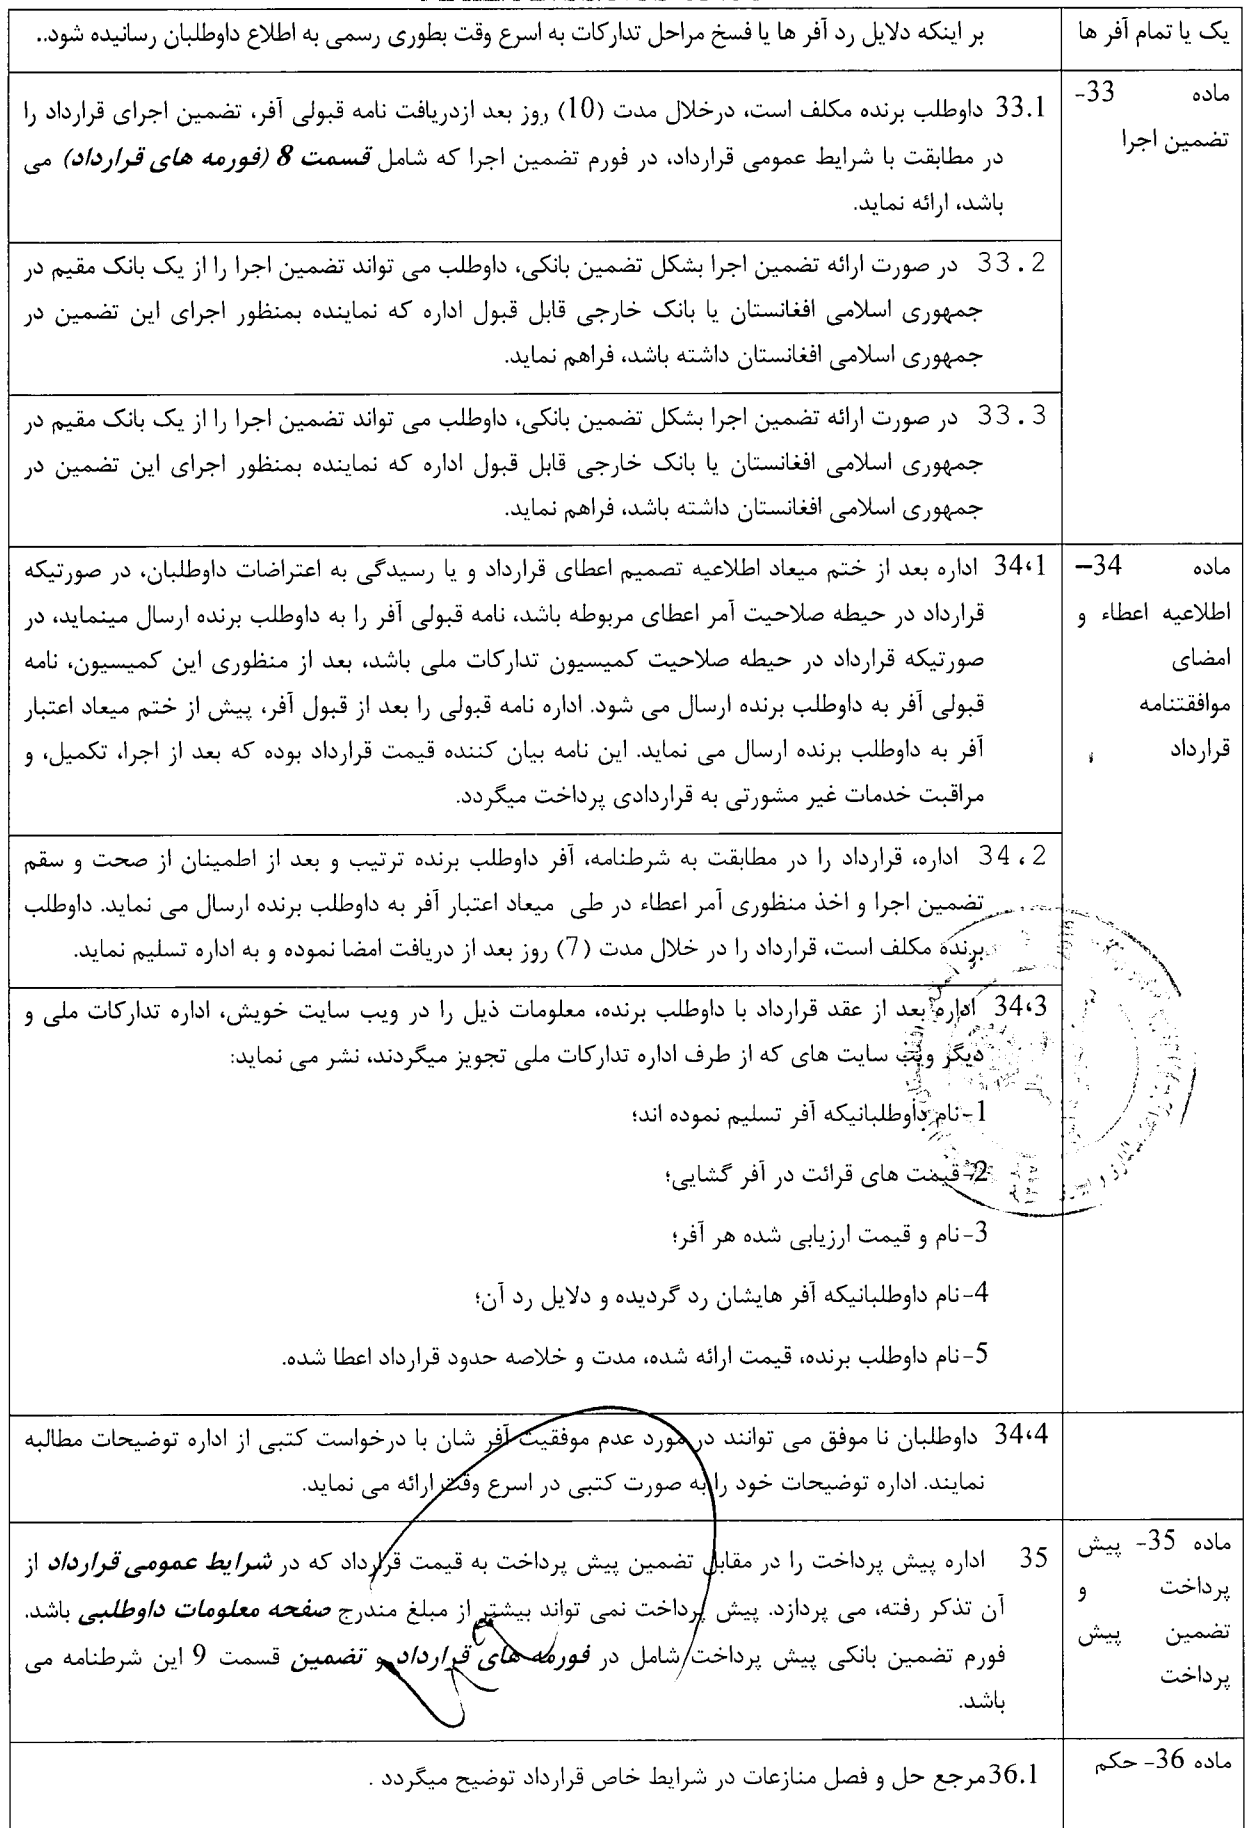 یک یا تمام آفر ها
بر اینکه دلایل رد آفر ها یا فسخ مراحل تدارکات به اسرع وقت بطوری رسمی به اطلاع داوطلبان رسانیده شود..
ماده 33-
تضمین اجرا
33.1 داوطلب برنده مکلف است، درخلال مدت (10) روز بعد ازدریافت نامه قبولی آفر، تضمین اجرای قرارداد را
در مطابقت با شرایط عمومی قرارداد، در فورم تضمین اجرا که شامل قسمت 8 (فورمه های قرارداد) می
باشد، ارائه نماید.
33.2 در صورت ارائه تضمین اجرا بشکل تضمین بانکی، داوطلب می تواند تضمین اجرا را از یک بانک مقیم در
جمهوری اسلامی افغانستان یا بانک خارجی قابل قبول اداره که نماینده بمنظور اجرای این تضمین در
جمهوری اسلامی افغانستان داشته باشد، فراهم نماید.
33.3 در صورت ارائه تضمین اجرا بشکل تضمین بانکی، داوطلب می تواند تضمین اجرا را از یک بانک مقیم در
جمهوری اسلامی افغانستان یا بانک خارجی قابل قبول اداره که نماینده بمنظور اجرای این تضمین در
جمهوری اسلامی افغانستان داشته باشد، فراهم نماید.
ماده 34–
اطلاعیه اعطاء و
امضای
موافقتنامه
قرارداد
34،1 اداره بعد از ختم میعاد اطلاعیه تصمیم اعطای قرارداد و یا رسیدگی به اعتراضات داوطلبان، در صورتیکه
قرارداد در حیطه صلاحیت آمر اعطای مربوطه باشد، نامه قبولی آفر را به داوطلب برنده ارسال مینماید، در
صورتیکه قرارداد در حیطه صلاحیت کمیسیون تدارکات ملی باشد، بعد از منظوری این کمیسیون، نامه
قبولی آفر به داوطلب برنده ارسال می شود. اداره نامه قبولی را بعد از قبول آفر، پیش از ختم میعاد اعتبار
آفر به داوطلب برنده ارسال می نماید. این نامه بیان کننده قیمت قرارداد بوده که بعد از اجرا، تکمیل، و
مراقبت خدمات غیر مشورتی به قراردادی پرداخت میگردد.
34،2 اداره، قرارداد را در مطابقت به شرطنامه، آفر داوطلب برنده ترتیب و بعد از اطمینان از صحت و سقم
تضمین اجرا و اخذ منظوری آمر اعطاء در طی میعاد اعتبار آفر به داوطلب برنده ارسال می نماید. داوطلب
برنده مکلف است، قرارداد را در خلال مدت (7) روز بعد از دریافت امضا نموده و به اداره تسلیم نماید.
34،3 اداره بعد از عقد قرارداد با داوطلب برنده، معلومات ذیل را در ویب سایت خویش، اداره تدارکات ملی و
دیگر ویب سایت های که از طرف اداره تدارکات ملی تجویز میگردند، نشر می نماید:
1-نام داوطلبانیکه آفر تسلیم نموده اند؛
2-قیمت های قرائت در آفر گشایی؛
3-نام و قیمت ارزیابی شده هر آفر؛
4-نام داوطلبانیکه آفر هایشان رد گردیده و دلایل رد آن؛
5-نام داوطلب برنده، قیمت ارائه شده، مدت و خلاصه حدود قرارداد اعطا شده.
34،4 داوطلبان نا موفق می توانند در مورد عدم موفقیت آفر شان با درخواست کتبی از اداره توضیحات مطالبه
نمایند. اداره توضیحات خود را به صورت کتبی در اسرع وقت ارائه می نماید.
ماده 35- پیش
پرداخت و
تضمین پیش
پرداخت
35 اداره پیش پرداخت را در مقابل تضمین پیش پرداخت به قیمت قرارداد که در شرایط عمومی قرارداد از
آن تذکر رفته، می پردازد. پیش پرداخت نمی تواند بیشتر از مبلغ مندرج صفحه معلومات داوطلبی باشد.
فورم تضمین بانکی پیش پرداخت شامل در فورمه های قرارداد و تضمین قسمت 9 این شرطنامه می
باشد.
ماده 36- حکم
36.1مرجع حل و فصل منازعات در شرایط خاص قرارداد توضیح میگردد .